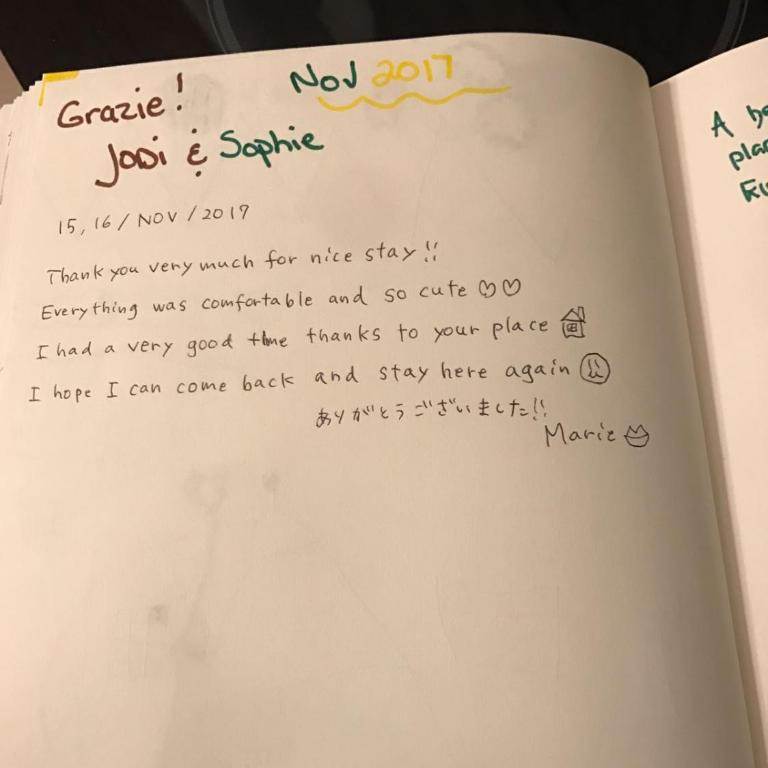 Grazie! Nov 2017
Jodi & Sophie
15, 16 / NOV / 2017
Thank you very much for nice stay!!
Everything was comfortable and so cute ♡♡
I had a very good time thanks to your place
I hope I can come back and stay here again
ありがとうございました!!
Marie
A